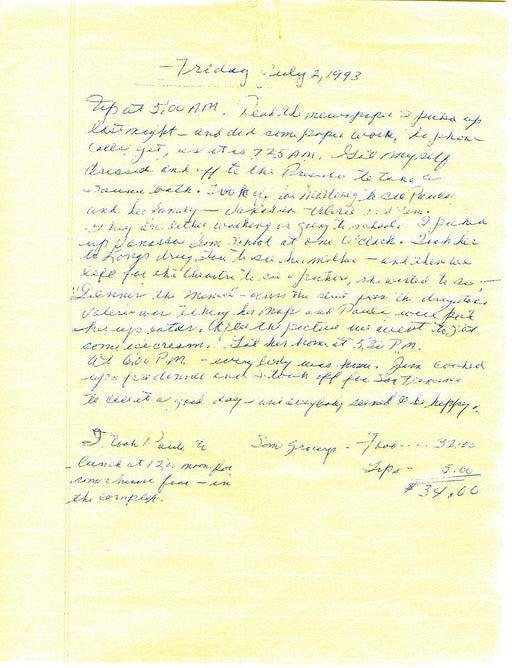 - Friday July 2, 1993
Up at 5:00 AM. Read the newspaper I picked up
last night - and did some paper work, no phone
calls yet, as it is 7:25 AM. Got myself
dressed and off to the Presidio to take a
sauna bath. Took off for to see Paula
and her family - Vanessa - Valerie and Jim.
They are either working or going to school. I picked
up Vanessa from School at one O'clock. Took her
to Longs drug store to see her mother - and then we
left for the theatre to see a picture, she wanted to see -
"Dennis the Menace" - across the street from the drugstore
Valerie was taking her nap and Paula would pick
her up later. After the picture we went to get
some ice cream. Got her home at 5:30 P.M.
At 6:00 P.M. - everybody was home. Jim cooked
up a dinner and I took off for San Francisco
to call it a good day - and everybody seemed to be happy.
I took Paula to
lunch at 12:00 noon for
some chinese food - in
the complex.
Some Grocerys - Food ---- 32.00
Tips - 5.00
$34.00